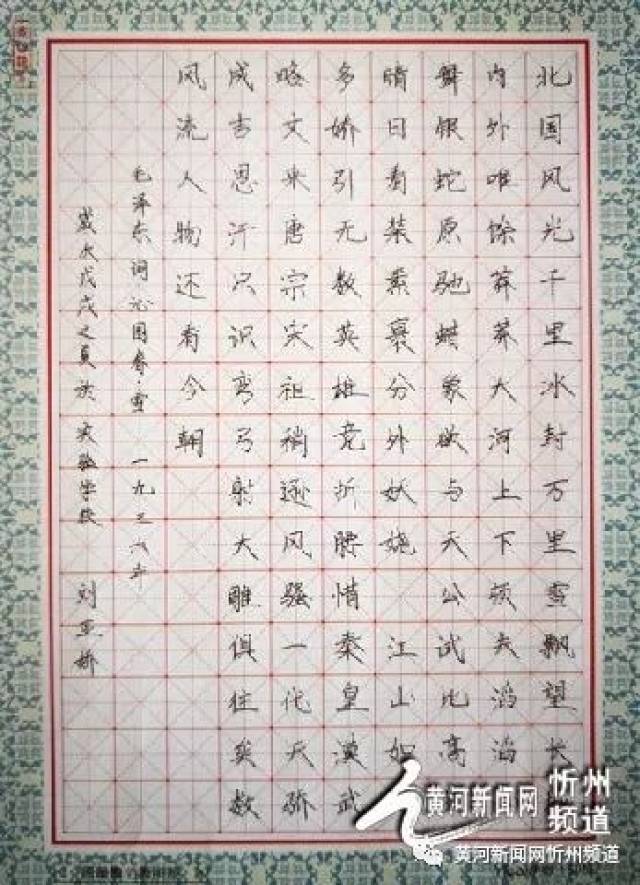 北国风光千里冰封万里雪飘望长
内外唯馀莽莽大河上下顿失滔滔
舞银蛇原驰蜡象欲与天公试比高
晴日看装素裹分外妖娆 江山如
多娇引无数英雄竞折腰惜秦皇汉武
略文采唐宗宋祖稍逊风骚一代天骄
成吉思汗只识弯弓射大雕俱往矣数
风流人物还看今朝
毛泽东词沁园春·雪 一九三六年
岁次戊戌之夏於实验学校 刘亚娇
黄河新闻网 忻州频道
黄河新闻网忻州频道